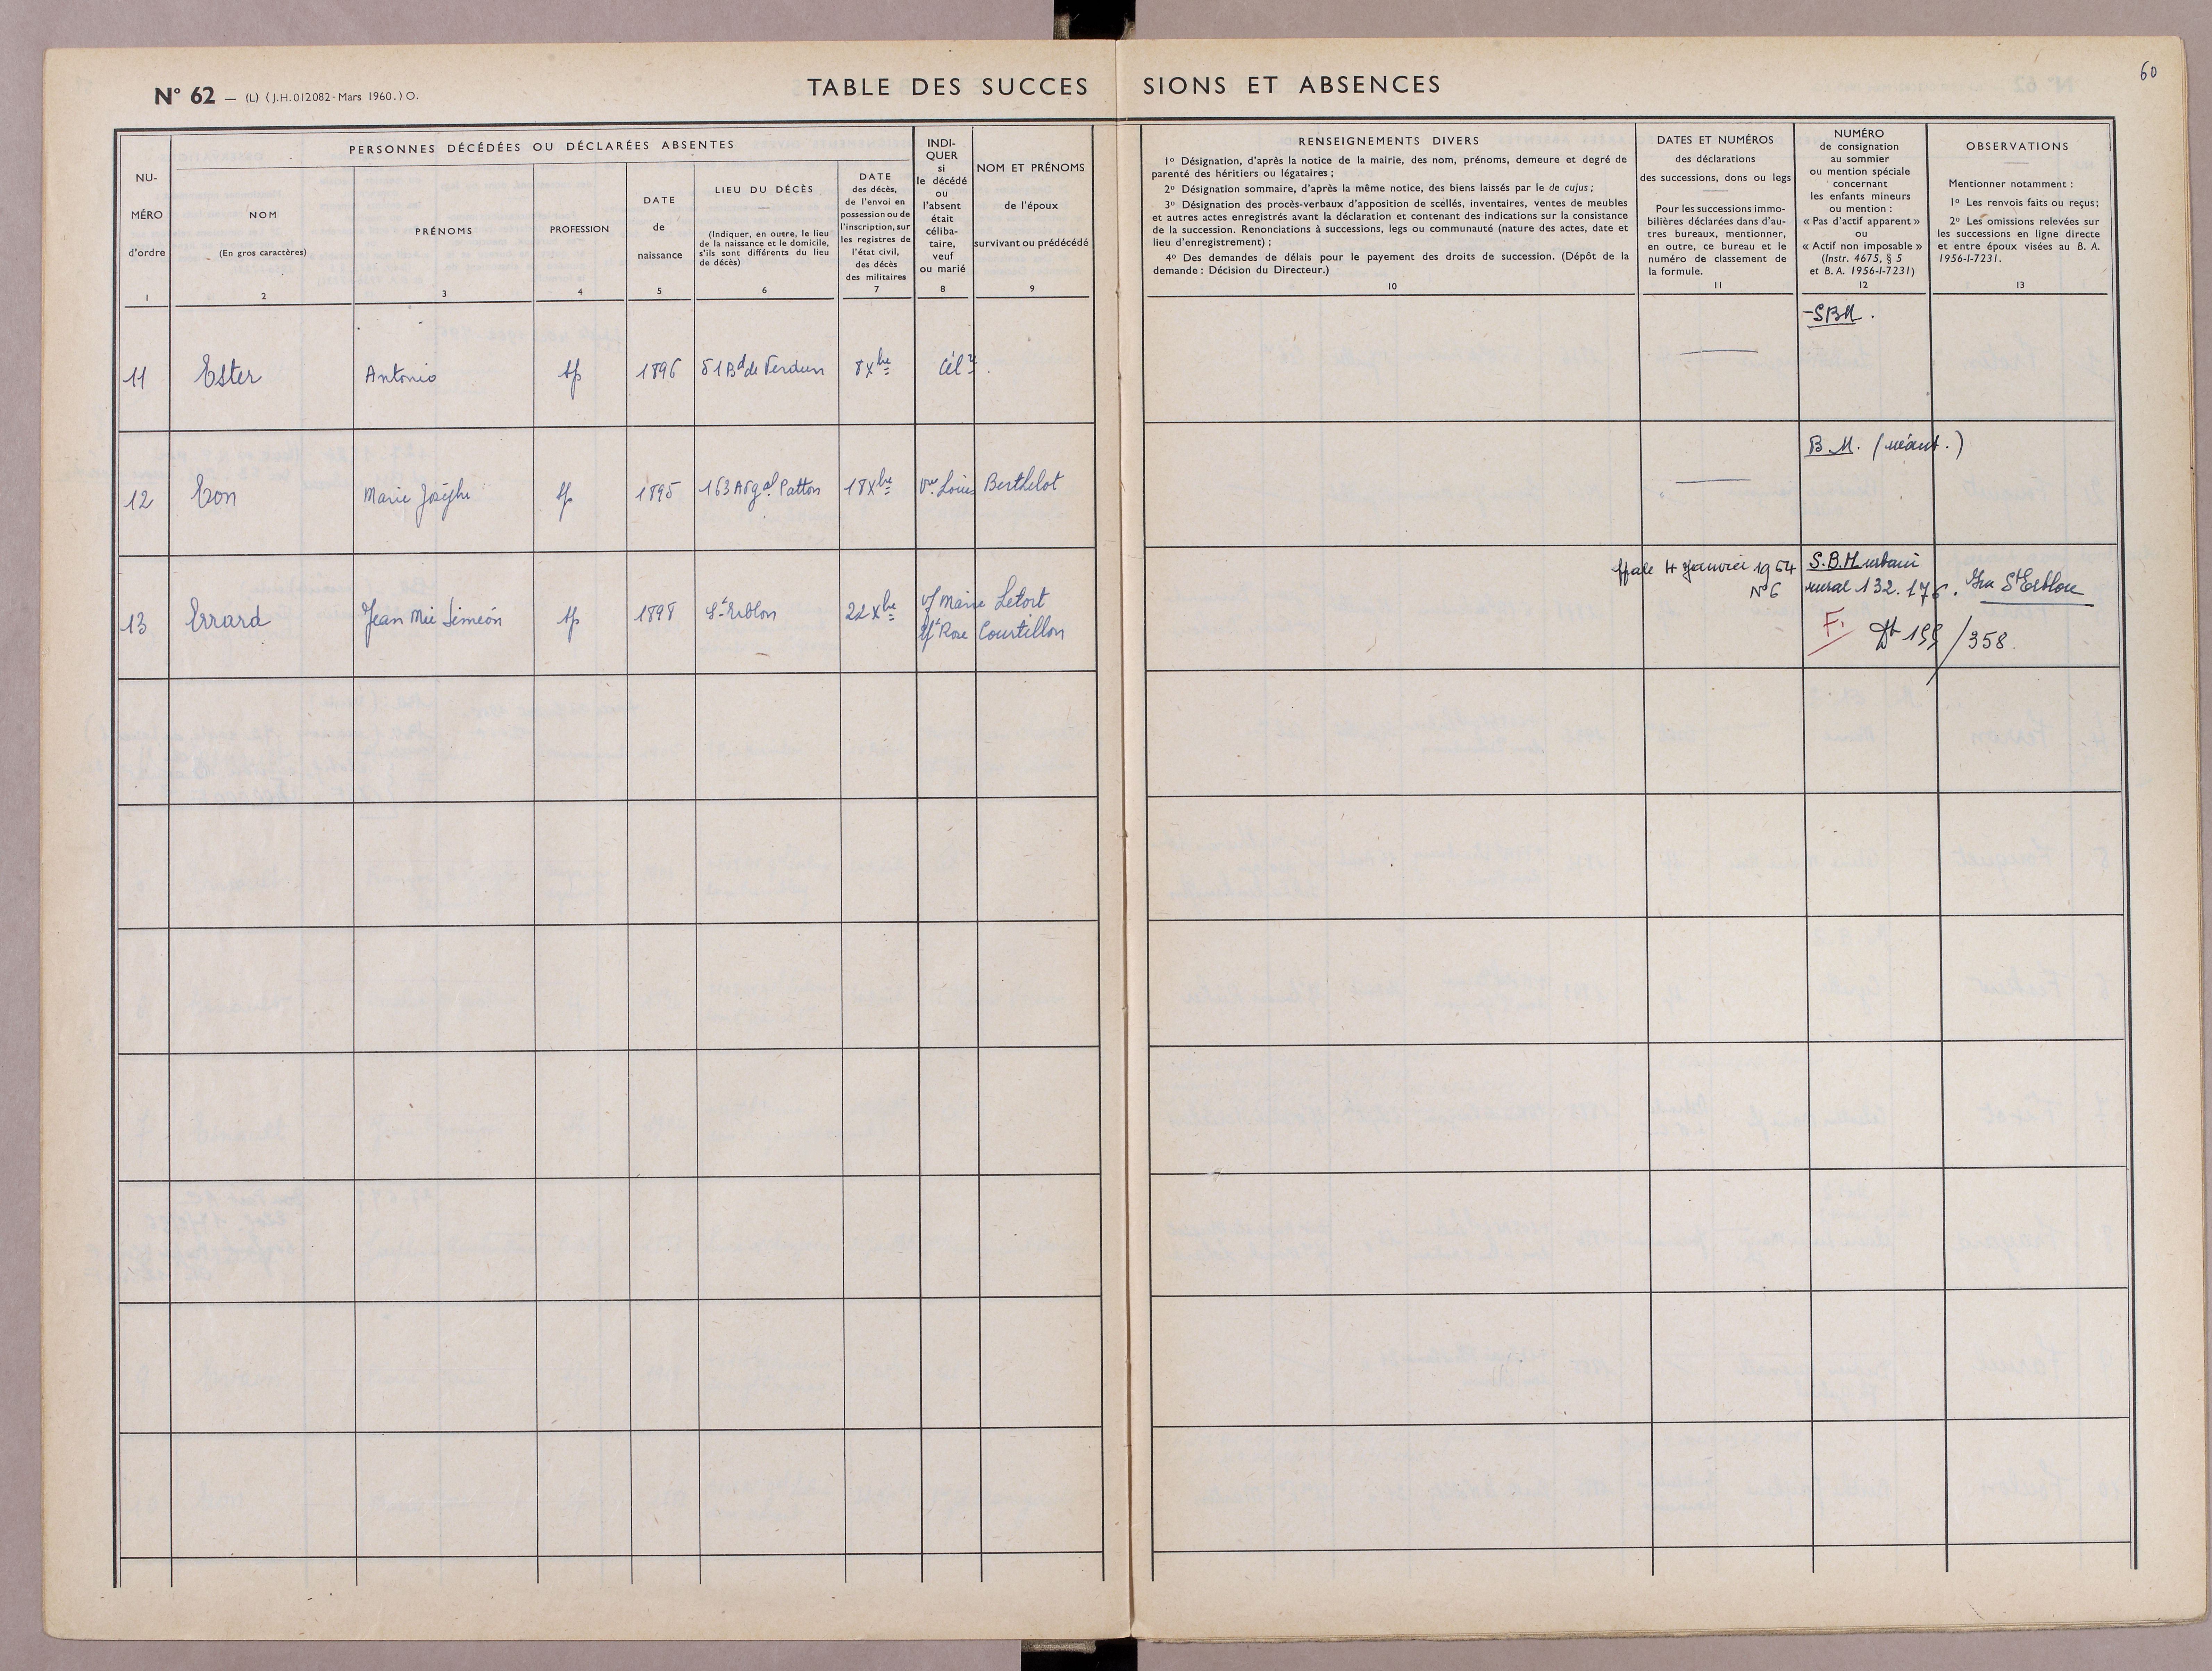 N° 62 — (L) (J.H. 012082 - Mars 1960.) O.
TABLE DES SUCCES SIONS ET ABSENCES
60
NU-
MÉRO
d'ordre
1
PERSONNES DÉCÉDÉES OU DÉCLARÉES ABSENTES
NOM
(En gros caractères)
2
PRÉNOMS
3
PROFESSION
4
DATE
de
naissance
5
LIEU DU DÉCÈS
—
(Indiquer, en outre, le lieu
de la naissance et le domicile,
s'ils sont différents du lieu
de décès)
6
DATE
des décès,
de l'envoi en
possession ou de
l'inscription, sur
les registres de
l'état civil,
des décès
des militaires
7
INDI-
QUER
si
le décédé
ou
l'absent
était
céliba-
taire,
veuf
ou marié
8
NOM ET PRÉNOMS
de l'époux
survivant ou prédécédé
9
RENSEIGNEMENTS DIVERS
1° Désignation, d'après la notice de la mairie, des nom, prénoms, demeure et degré de
parenté des héritiers ou légataires ;
2° Désignation sommaire, d'après la même notice, des biens laissés par le de cujus ;
3° Désignation des procès-verbaux d'apposition de scellés, inventaires, ventes de meubles
et autres actes enregistrés avant la déclaration et contenant des indications sur la consistance
de la succession. Renonciations à successions, legs ou communauté (nature des actes, date et
lieu d'enregistrement) ;
4° Des demandes de délais pour le payement des droits de succession. (Dépôt de la
demande : Décision du Directeur.)
10
DATES ET NUMÉROS
des déclarations
des successions, dons ou legs
Pour les successions immo-
bilières déclarées dans d'au-
tres bureaux, mentionner,
en outre, ce bureau et le
numéro de classement de
la formule.
11
NUMÉRO
de consignation
au sommier
ou mention spéciale
concernant
les enfants mineurs
ou mention :
« Pas d'actif apparent »
ou
« Actif non imposable »
(Instr. 4675, § 5
et B. A. 1956-I-7231)
12
OBSERVATIONS
Mentionner notamment :
1° Les renvois faits ou reçus;
2° Les omissions relevées sur
les successions en ligne directe
et entre époux visées au B. A.
1956-I-7231.
13
11 Ester Antonio sp 1896 51 Bd de Verdun 8 Xbre Célre.
— SBM.
12 Eon Marie Josèphe sp 1895 163 Av gal Patton 18 Xbre Vve Louis Berthelot
— B.M. (néant.)
13 Errard Jean Mie Siméon sp 1898 St-Erblon 22 Xbre Vf Marie Letort
Rose Courtillon
4 Janvier 1964 S.B.M. urbain
N° 6 rural 132.176. St Erblon
F. 199/358.